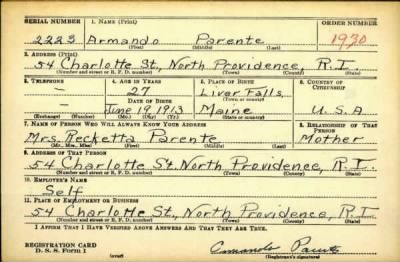 SERIAL NUMBER 1. NAME (Print) ORDER NUMBER
2223 Armando Parente 1930
(First) (Middle) (Last)
2. ADDRESS (Print)
54 Charlotte St., North Providence, R.I.
(Number and street or R. F. D. number) (Town) (County) (State)
3. TELEPHONE 4. AGE IN YEARS 5. PLACE OF BIRTH 6. COUNTRY OF CITIZENSHIP
– 27 Liver Falls,
DATE OF BIRTH (Town or county)
– June 19 1913 Maine U.S.A.
(Exchange) (Number) (Mo.) (Day) (Yr.) (State or country)
7. NAME OF PERSON WHO WILL ALWAYS KNOW YOUR ADDRESS 8. RELATIONSHIP OF THAT PERSON
Mrs. Recketta Parente Mother
(Mr., Mrs., Miss) (First) (Middle) (Last)
9. ADDRESS OF THAT PERSON
54 Charlotte St. North Providence, R.I.
(Number and street or R. F. D. number) (Town) (County) (State)
10. EMPLOYER'S NAME
Self
11. PLACE OF EMPLOYMENT OR BUSINESS
54 Charlotte St., North Providence, R.I.
(Number and street or R. F. D. number) (Town) (County) (State)
I AFFIRM THAT I HAVE VERIFIED ABOVE ANSWERS AND THAT THEY ARE TRUE.
REGISTRATION CARD
D. S. S. Form 1 (over) Armando Parente
(Registrant's signature)